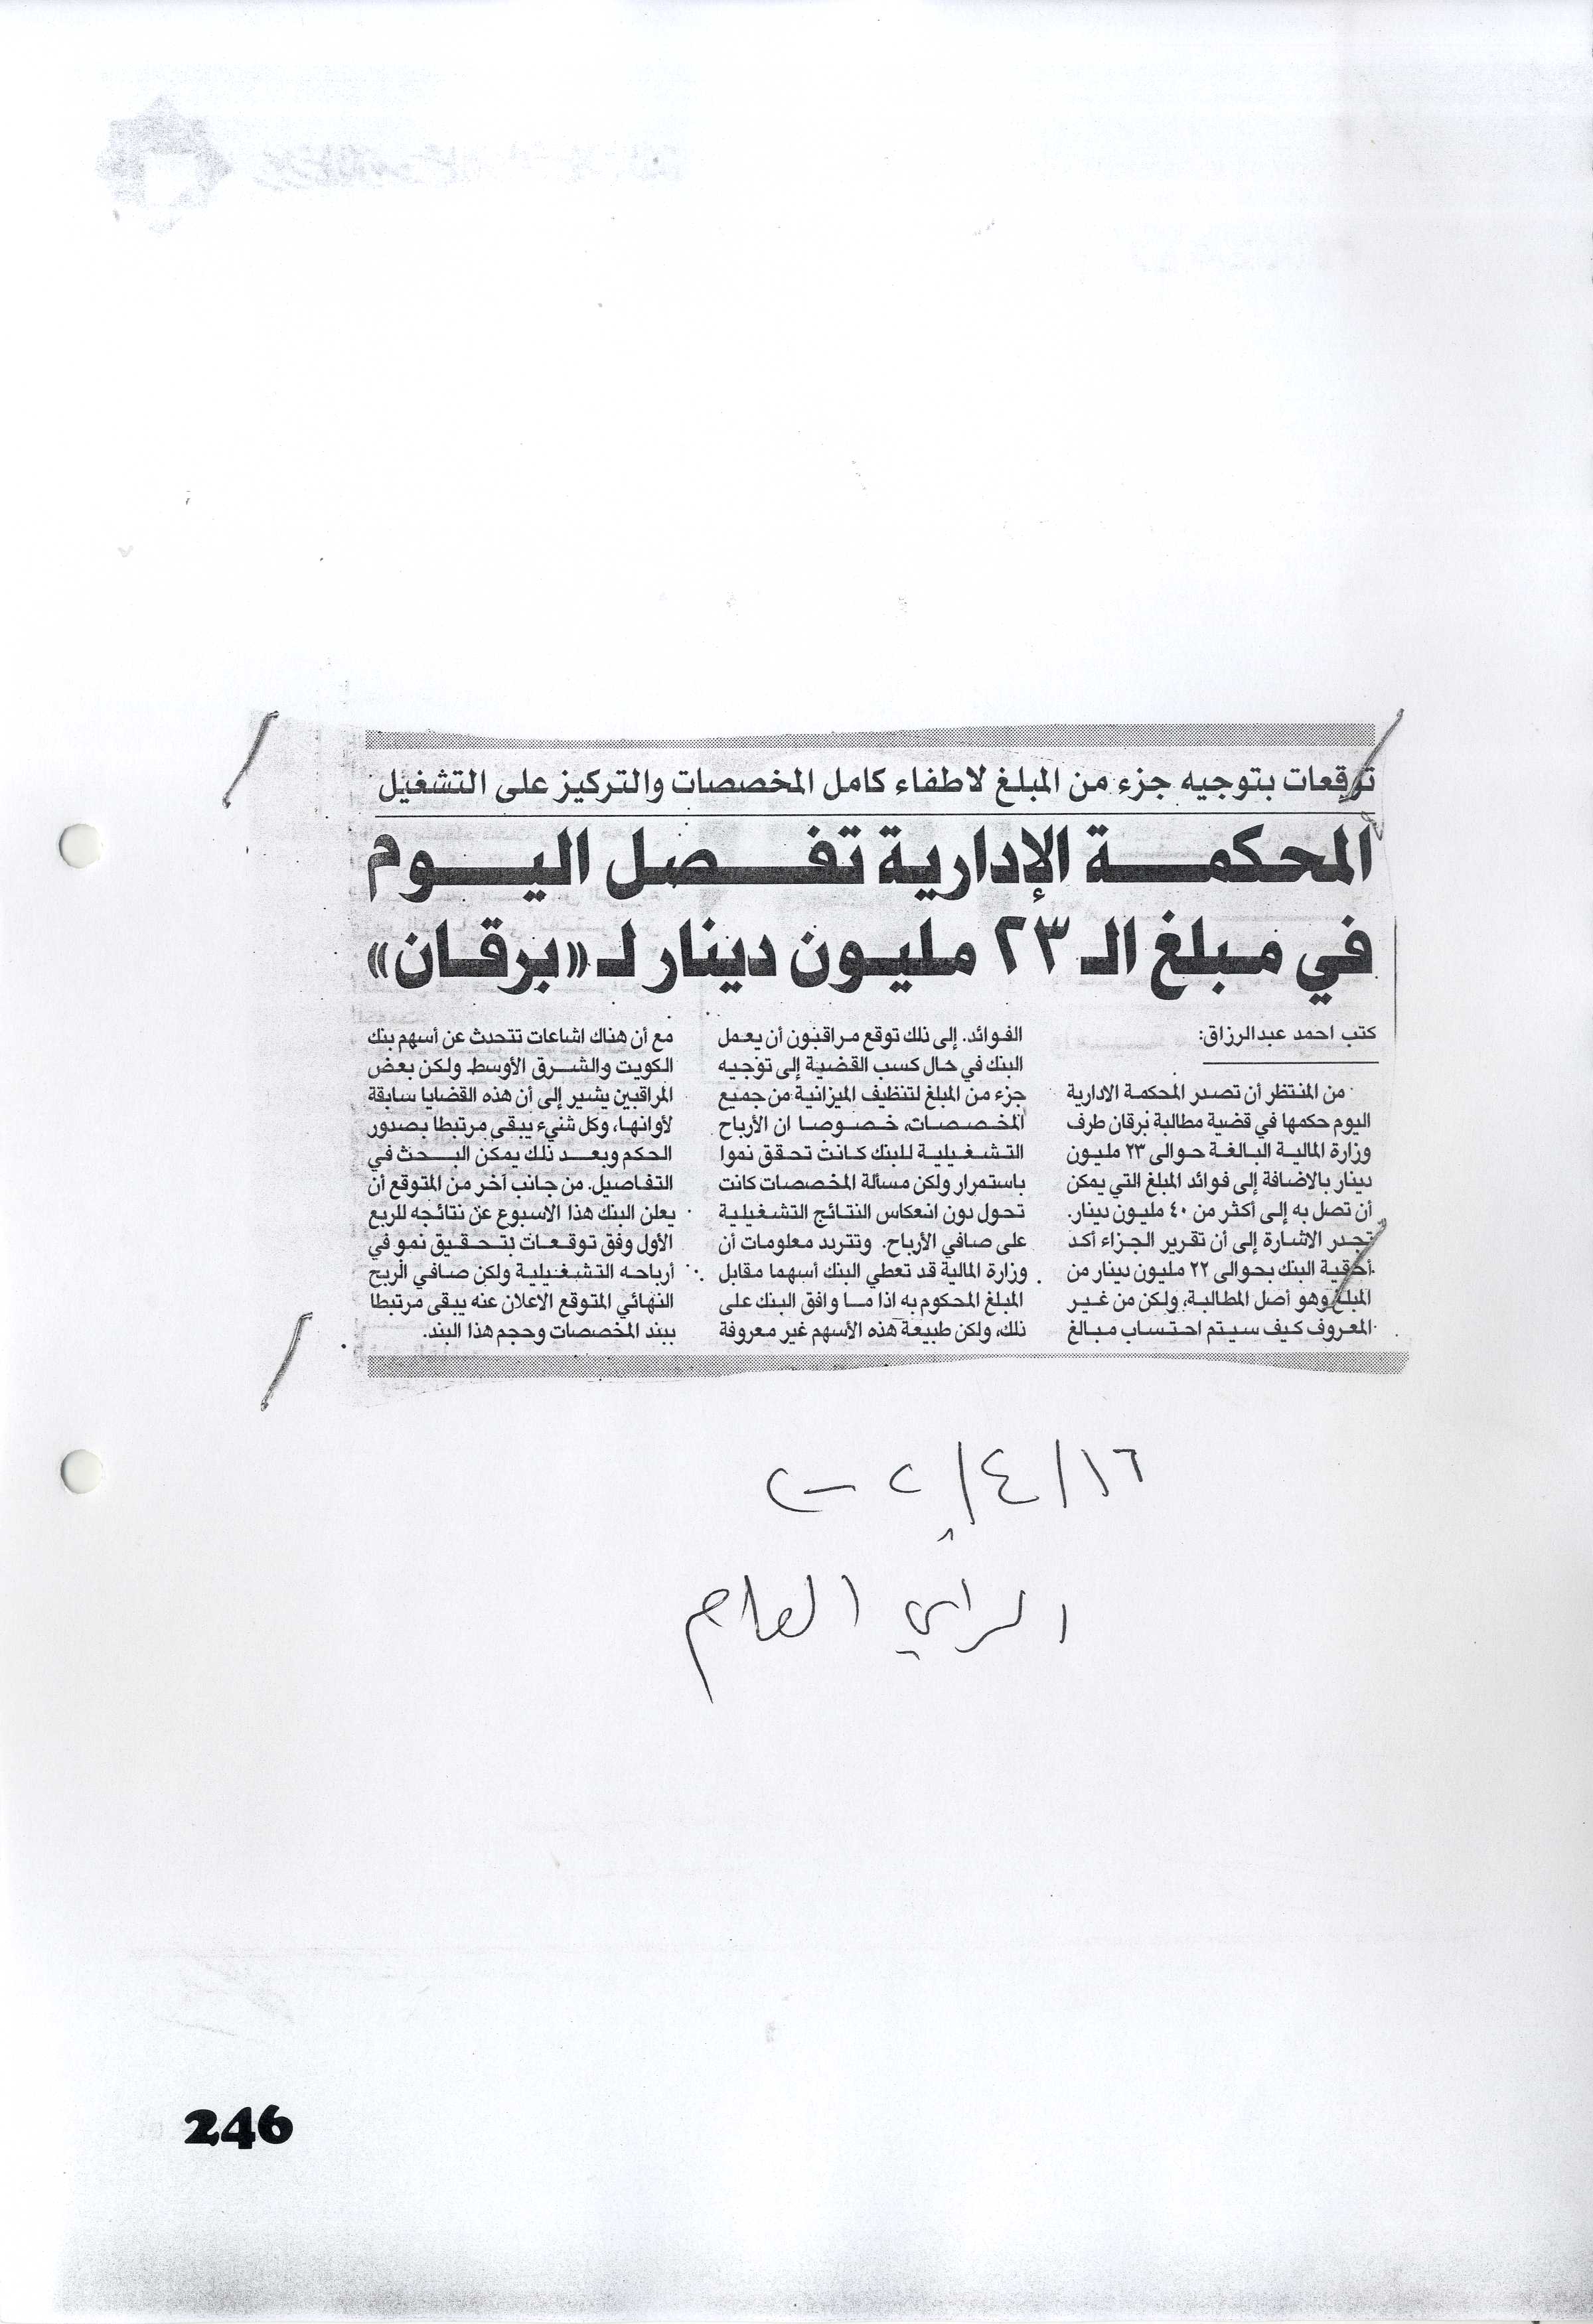 توقعات بتوجيه جزء من المبلغ لاطفاء كامل المخصصات والتركيز على التشغيل
المحكمة الإدارية تفصل اليوم
في مبلغ الـ ٢٣ مليون دينار لـ «برقان»
كتب احمد عبدالرزاق:
من المنتظر أن تصدر المحكمة الادارية
اليوم حكمها في قضية مطالبة برقان طرف
وزارة المالية البالغة حوالى ٢٣ مليون
دينار بالاضافة إلى فوائد المبلغ التي يمكن
أن تصل به إلى أكثر من ٤٠ مليون دينار.
تجدر الاشارة إلى أن تقرير الجزاء أكد
أحقية البنك بحوالى ٢٢ مليون دينار من
المبلغ وهو أصل المطالبة، ولكن من غير
المعروف كيف سيتم احتساب مبالغ
الفوائد. إلى ذلك توقع مراقبون أن يعمل
البنك في حال كسب القضية إلى توجيه
جزء من المبلغ لتنظيف الميزانية من جميع
المخصصات، خصوصا ان الأرباح
التشغيلية للبنك كانت تحقق نموا
باستمرار ولكن مسألة المخصصات كانت
تحول دون انعكاس النتائج التشغيلية
على صافي الأرباح. وتتردد معلومات أن
وزارة المالية قد تعطي البنك أسهما مقابل
المبلغ المحكوم به اذا ما وافق البنك على
ذلك، ولكن طبيعة هذه الأسهم غير معروفة
مع أن هناك اشاعات تتحدث عن أسهم بنك
الكويت والشرق الأوسط ولكن بعض
المراقبين يشير إلى أن هذه القضايا سابقة
لأوانها، وكل شيء يبقى مرتبطا بصدور
الحكم وبعد ذلك يمكن البحث في
التفاصيل. من جانب آخر من المتوقع أن
يعلن البنك هذا الأسبوع عن نتائجه للربع
الأول وفق توقعات بتحقيق نمو في
أرباحه التشغيلية ولكن صافي الربح
النهائي المتوقع الاعلان عنه يبقى مرتبطا
ببند المخصصات وحجم هذا البند.
١٦/٤/٢٠٠٢
الراي العام
246